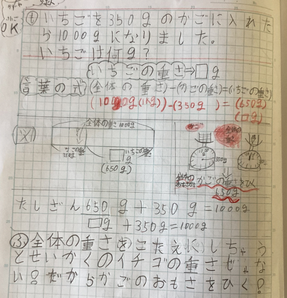 OK
も いちごを350gのかごに入れた
ら1000gになりました。
いちごは何g？
いちごの重さ⇒□g
言葉の式 (全体の重さ)-(かごの重さ)=(いちごの重さ)
(1000g(1kg))-(350g)=(650g)
(□g)
図
全体の重さ1000g
いちごの重さ
□g
(650g)
かごの重さ
650g
たしざん650g+350g=1000g
□g+350g=1000g
全体の重さをこたえにしちゃう
とせいかくのイチゴの重さぢゃな
い！だからかごのおもさをひく！